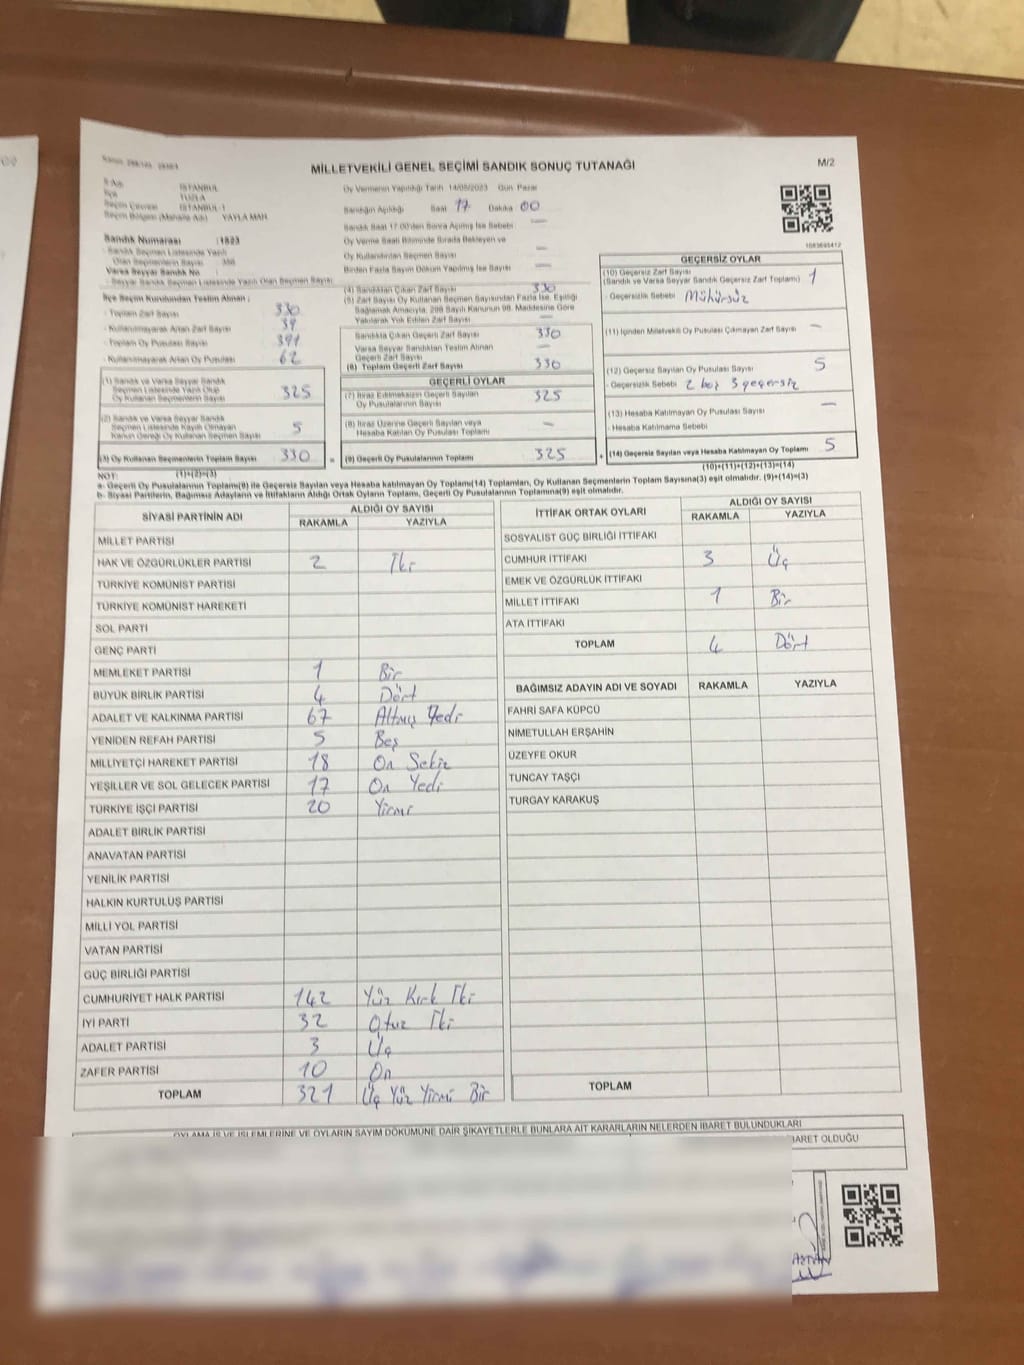 MİLLETVEKİLİ GENEL SEÇİMİ SANDIK SONUÇ TUTANAĞI
M/2
İSTANBUL
TUZLA
İSTANBUL-1
Seçim Bölgesi (Mahalle Adı) YAYLA MAH.
Oy Vermenin Yapıldığı Tarih 14/05/2023 Gün Pazar
Sandığın Açıldığı Saat 17 Dakika 00
Sandık Saat 17:00'den Sonra Açılmış İse Sebebi —
Oy Verme Saati Bitiminde Sırada Bekleyen ve
Oy Kullandırılan Seçmen Sayısı —
Birden Fazla Sayım Döküm Yapılmış İse Sayısı —
Sandık Numarası : 1823
Sandık Seçmen Listesinde Yazılı
Olan Seçmenlerin Sayısı
Varsa Seyyar Sandık No :
Seyyar Sandık Seçmen Listesinde Yazılı Olan Seçmen Sayısı
İlçe Seçim Kurulundan Teslim Alınan :
- Toplam Zarf Sayısı 330
- Kullanılmayarak Artan Zarf Sayısı 39
- Toplam Oy Pusulası Sayısı 391
- Kullanılmayarak Artan Oy Pusulası 62
(1) Sandık ve Varsa Seyyar Sandık
Seçmen Listesinde Yazılı Olup
Oy Kullanan Seçmenlerin Sayısı 325
(2) Sandık ve Varsa Seyyar Sandık
Seçmen Listesinde Kayıtlı Olmayan
Kanun Gereği Oy Kullanan Seçmen Sayısı 5
(3) Oy Kullanan Seçmenlerin Toplam Sayısı 330
(1)+(2)=(3)
(4) Sandıktan Çıkan Zarf Sayısı 330
(5) Zarf Sayısı Oy Kullanan Seçmen Sayısından Fazla İse, Eşitliği
Sağlamak Amacıyla, 298 Sayılı Kanunun 98. Maddesine Göre
Yakılarak Yok Edilen Zarf Sayısı —
Sandıkta Çıkan Geçerli Zarf Sayısı 330
Varsa Seyyar Sandıktan Teslim Alınan
Geçerli Zarf Sayısı —
(6) Toplam Geçerli Zarf Sayısı 330
GEÇERLİ OYLAR
(7) İtiraz Edilmeksizin Geçerli Sayılan
Oy Pusulalarının Sayısı 325
(8) İtiraz Üzerine Geçerli Sayılan veya
Hesaba Katılan Oy Pusulası Toplamı —
= (9) Geçerli Oy Pusulalarının Toplamı 325
1083695412
GEÇERSİZ OYLAR
(10) Geçersiz Zarf Sayısı
(Sandık ve Varsa Seyyar Sandık Geçersiz Zarf Toplamı) 1
- Geçersizlik Sebebi Mühürsüz
(11) İçinden Milletvekili Oy Pusulası Çıkmayan Zarf Sayısı —
(12) Geçersiz Sayılan Oy Pusulası Sayısı 5
- Geçersizlik Sebebi 2 boş 3 geçersiz
(13) Hesaba Katılmayan Oy Pusulası Sayısı —
- Hesaba Katılmama Sebebi
+ (14) Geçersiz Sayılan veya Hesaba Katılmayan Oy Toplamı 5
(10)+(11)+(12)+(13)=(14)
NOT:
a- Geçerli Oy Pusulalarının Toplamı(9) ile Geçersiz Sayılan veya Hesaba katılmayan Oy Toplamı(14) Toplamları, Oy Kullanan Seçmenlerin Toplam Sayısına(3) eşit olmalıdır. (9)+(14)=(3)
b- Siyasi Partilerin, Bağımsız Adayların ve İttifakların Aldığı Ortak Oyların Toplamı, Geçerli Oy Pusulalarının Toplamına(9) eşit olmalıdır.
SİYASİ PARTİNİN ADI ALDIĞI OY SAYISI
RAKAMLA YAZIYLA
MİLLET PARTİSİ
HAK VE ÖZGÜRLÜKLER PARTİSİ 2 İki
TÜRKİYE KOMÜNİST PARTİSİ
TÜRKİYE KOMÜNİST HAREKETİ
SOL PARTİ
GENÇ PARTİ
MEMLEKET PARTİSİ 1 Bir
BÜYÜK BİRLİK PARTİSİ 4 Dört
ADALET VE KALKINMA PARTİSİ 67 Altmış Yedi
YENİDEN REFAH PARTİSİ 5 Beş
MİLLİYETÇİ HAREKET PARTİSİ 18 On Sekiz
YEŞİLLER VE SOL GELECEK PARTİSİ 17 On Yedi
TÜRKİYE İŞÇİ PARTİSİ 20 Yirmi
ADALET BİRLİK PARTİSİ
ANAVATAN PARTİSİ
YENİLİK PARTİSİ
HALKIN KURTULUŞ PARTİSİ
MİLLİ YOL PARTİSİ
VATAN PARTİSİ
GÜÇ BİRLİĞİ PARTİSİ
CUMHURİYET HALK PARTİSİ 142 Yüz Kırk İki
İYİ PARTİ 32 Otuz İki
ADALET PARTİSİ 3 Üç
ZAFER PARTİSİ 10 On
TOPLAM 321 Üç Yüz Yirmi Bir
İTTİFAK ORTAK OYLARI ALDIĞI OY SAYISI
RAKAMLA YAZIYLA
SOSYALİST GÜÇ BİRLİĞİ İTTİFAKI
CUMHUR İTTİFAKI 3 Üç
EMEK VE ÖZGÜRLÜK İTTİFAKI
MİLLET İTTİFAKI 1 Bir
ATA İTTİFAKI
TOPLAM 4 Dört
BAĞIMSIZ ADAYIN ADI VE SOYADI RAKAMLA YAZIYLA
FAHRİ SAFA KÜPCÜ
NİMETULLAH ERŞAHİN
ÜZEYFE OKUR
TUNCAY TAŞÇI
TURGAY KARAKUŞ
TOPLAM
OYLAMA İŞ VE İŞLEMLERİNE VE OYLARIN SAYIM DÖKÜMÜNE DAİR ŞİKAYETLERLE BUNLARA AİT KARARLARIN NELERDEN İBARET BULUNDUKLARI
İBARET OLDUĞU